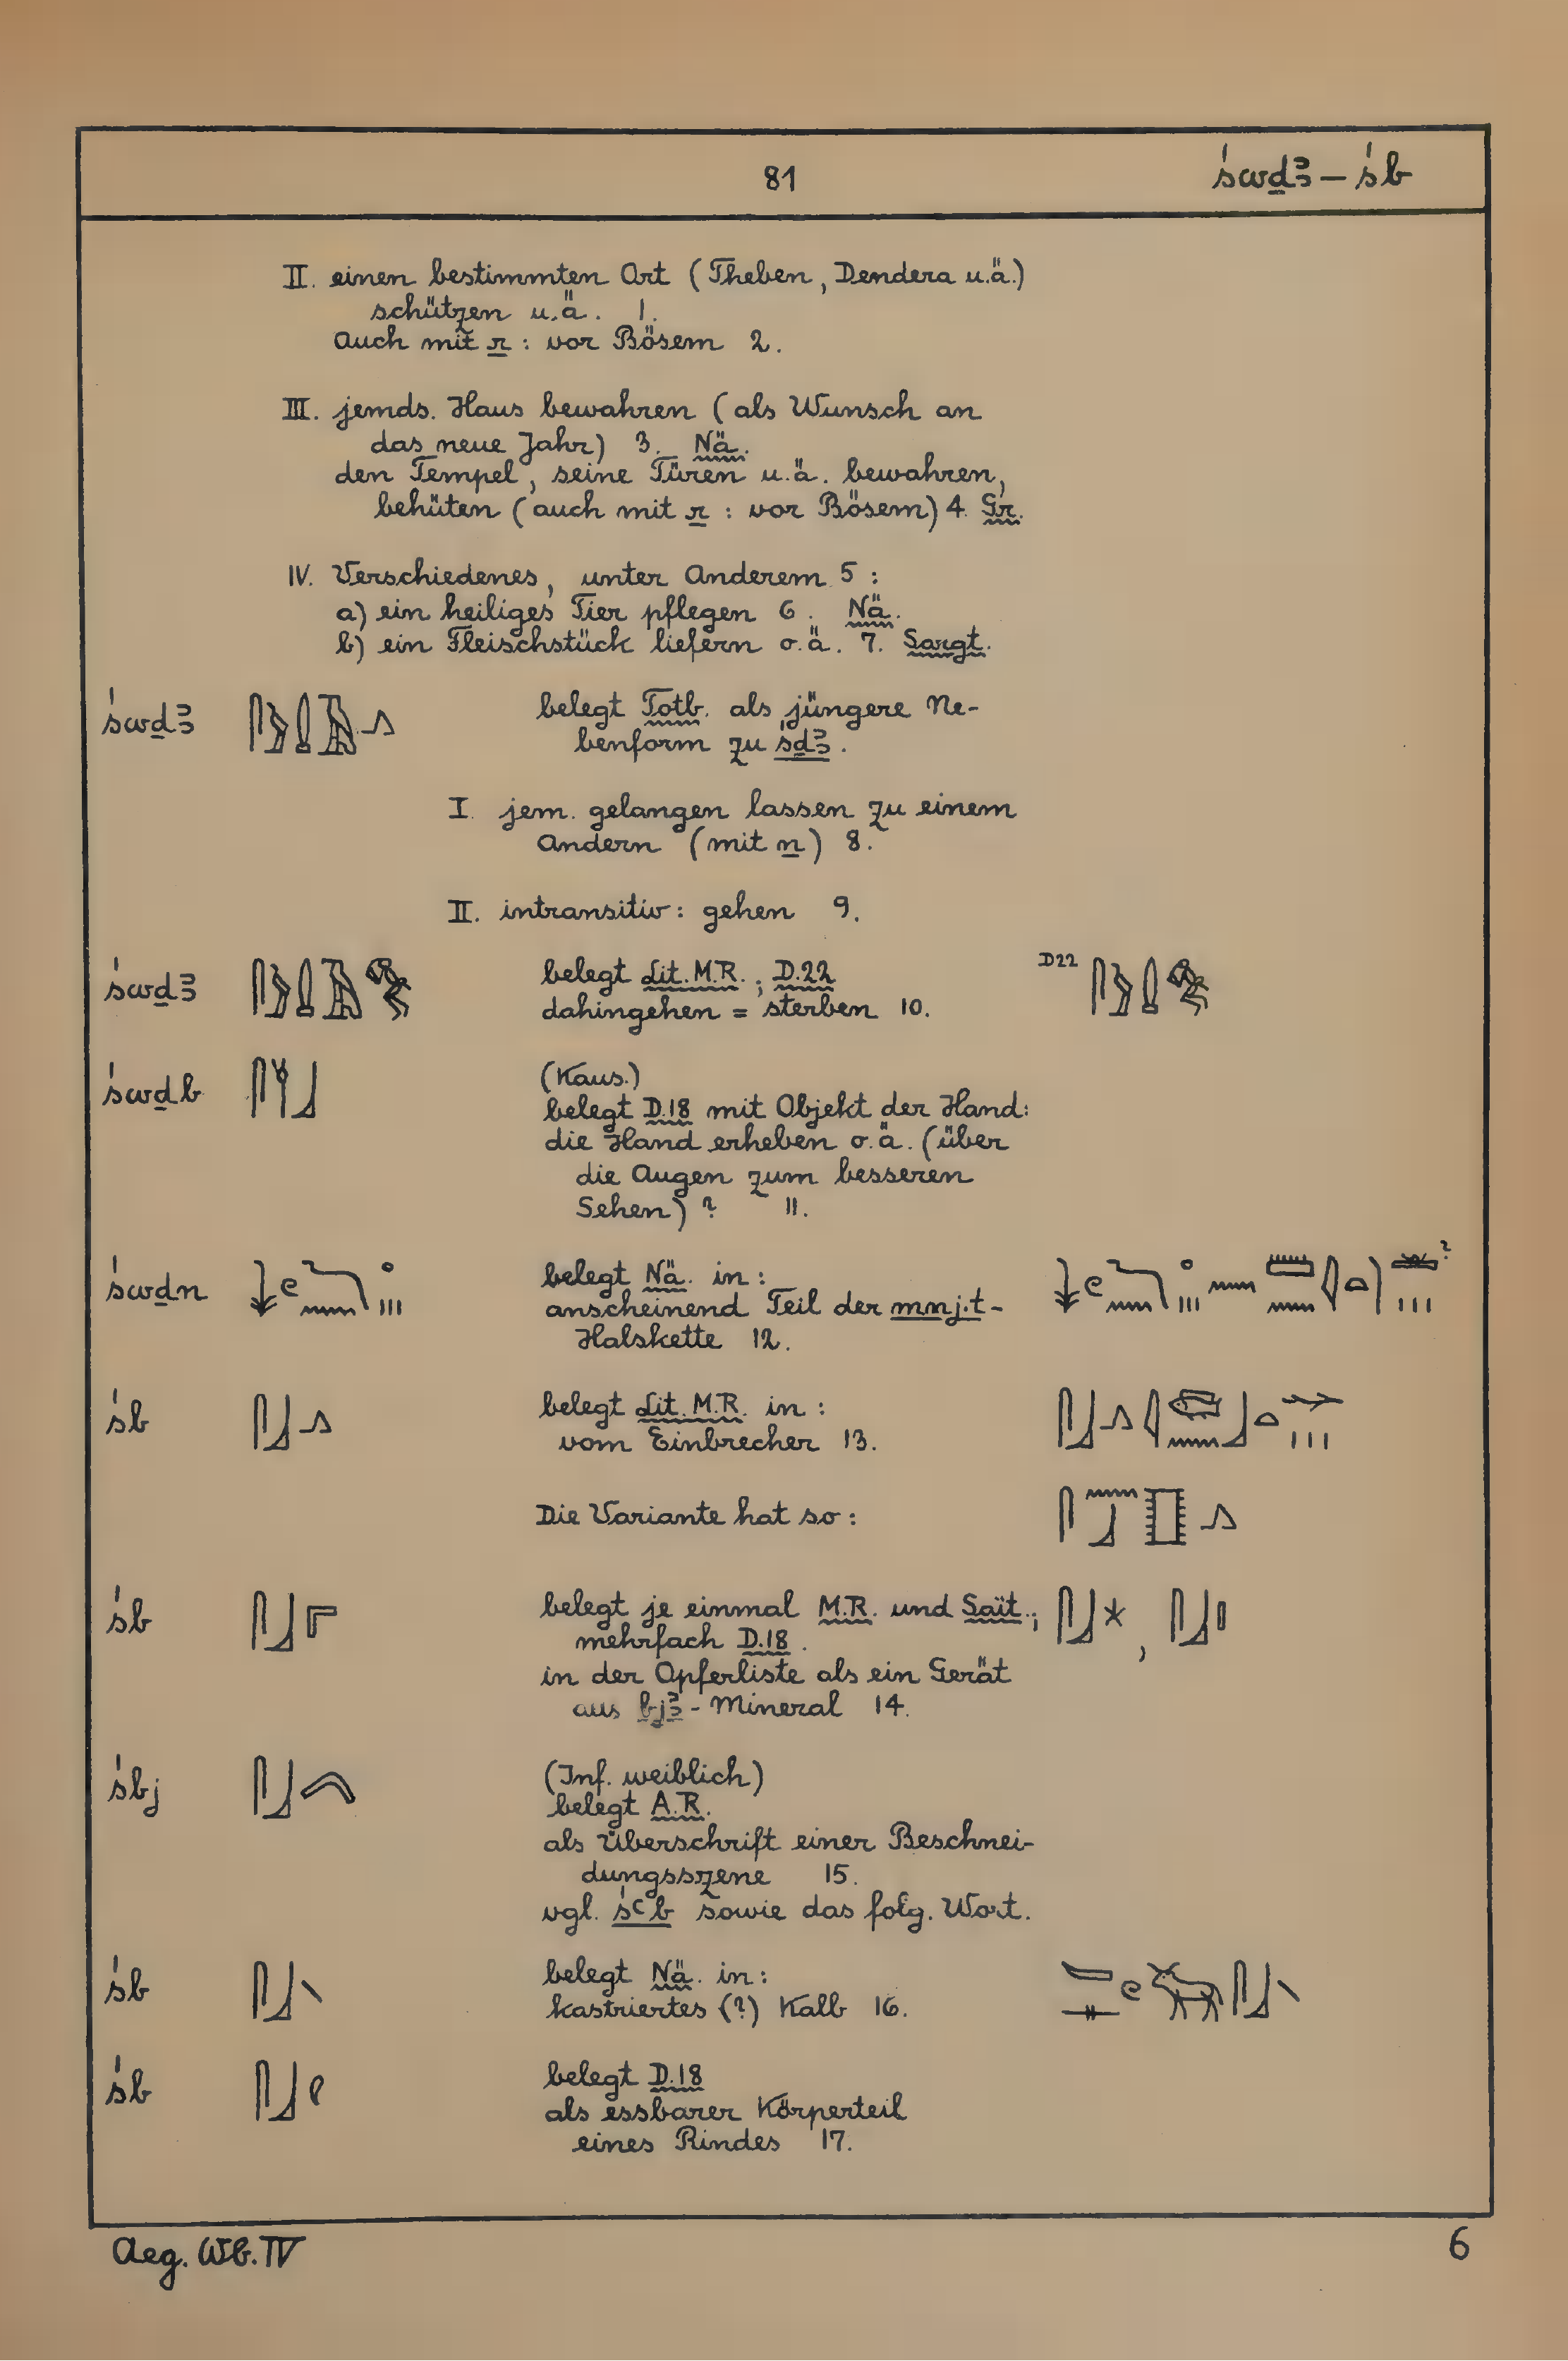 81
śwḏꜣ – śb
II. einen bestimmten Ort (Theben, Dendera u.ä.)
schützen u.ä. 1.
Auch mit r : vor Bösem 2.
III. jemds. Haus bewahren (als Wunsch an
das neue Jahr) 3. Nä.
den Tempel, seine Türen u.ä. bewahren,
behüten (auch mit r : vor Bösem) 4. Gr.
IV. Verschiedenes, unter Anderem 5 :
a) ein heiliges Tier pflegen 6. Nä.
b) ein Fleischstück liefern o.ä. 7. Sargt.
śwḏꜣ belegt Totb. als jüngere Ne-
benform zu śḏꜣ.
I. jem. gelangen lassen zu einem
Andern (mit n) 8.
II. intransitiv: gehen 9.
śwḏꜣ belegt Lit. M.R. ; D.22 D22
dahingehen = sterben 10.
śwḏb (Kaus.)
belegt D.18 mit Objekt der Hand:
die Hand erheben o.ä. (über
die Augen zum besseren
Sehen) ? 11.
śwḏn belegt Nä. in : ?
anscheinend Teil der mnj.t-
Halskette 12.
śb belegt Lit. M.R. in :
vom Einbrecher 13.
Die Variante hat so :
śb belegt je einmal M.R. und Saït.; ,
mehrfach D.18.
in der Opferliste als ein Gerät
aus bjꜣ - Mineral 14.
śbj (Inf. weiblich)
belegt A.R.
als Überschrift einer Beschnei-
dungsszene 15.
vgl. śꜥb sowie das folg. Wort.
śb belegt Nä. in :
kastriertes (?) Kalb 16.
śb belegt D.18
als essbarer Körperteil
eines Rindes 17.
Aeg. Wb. IV
6